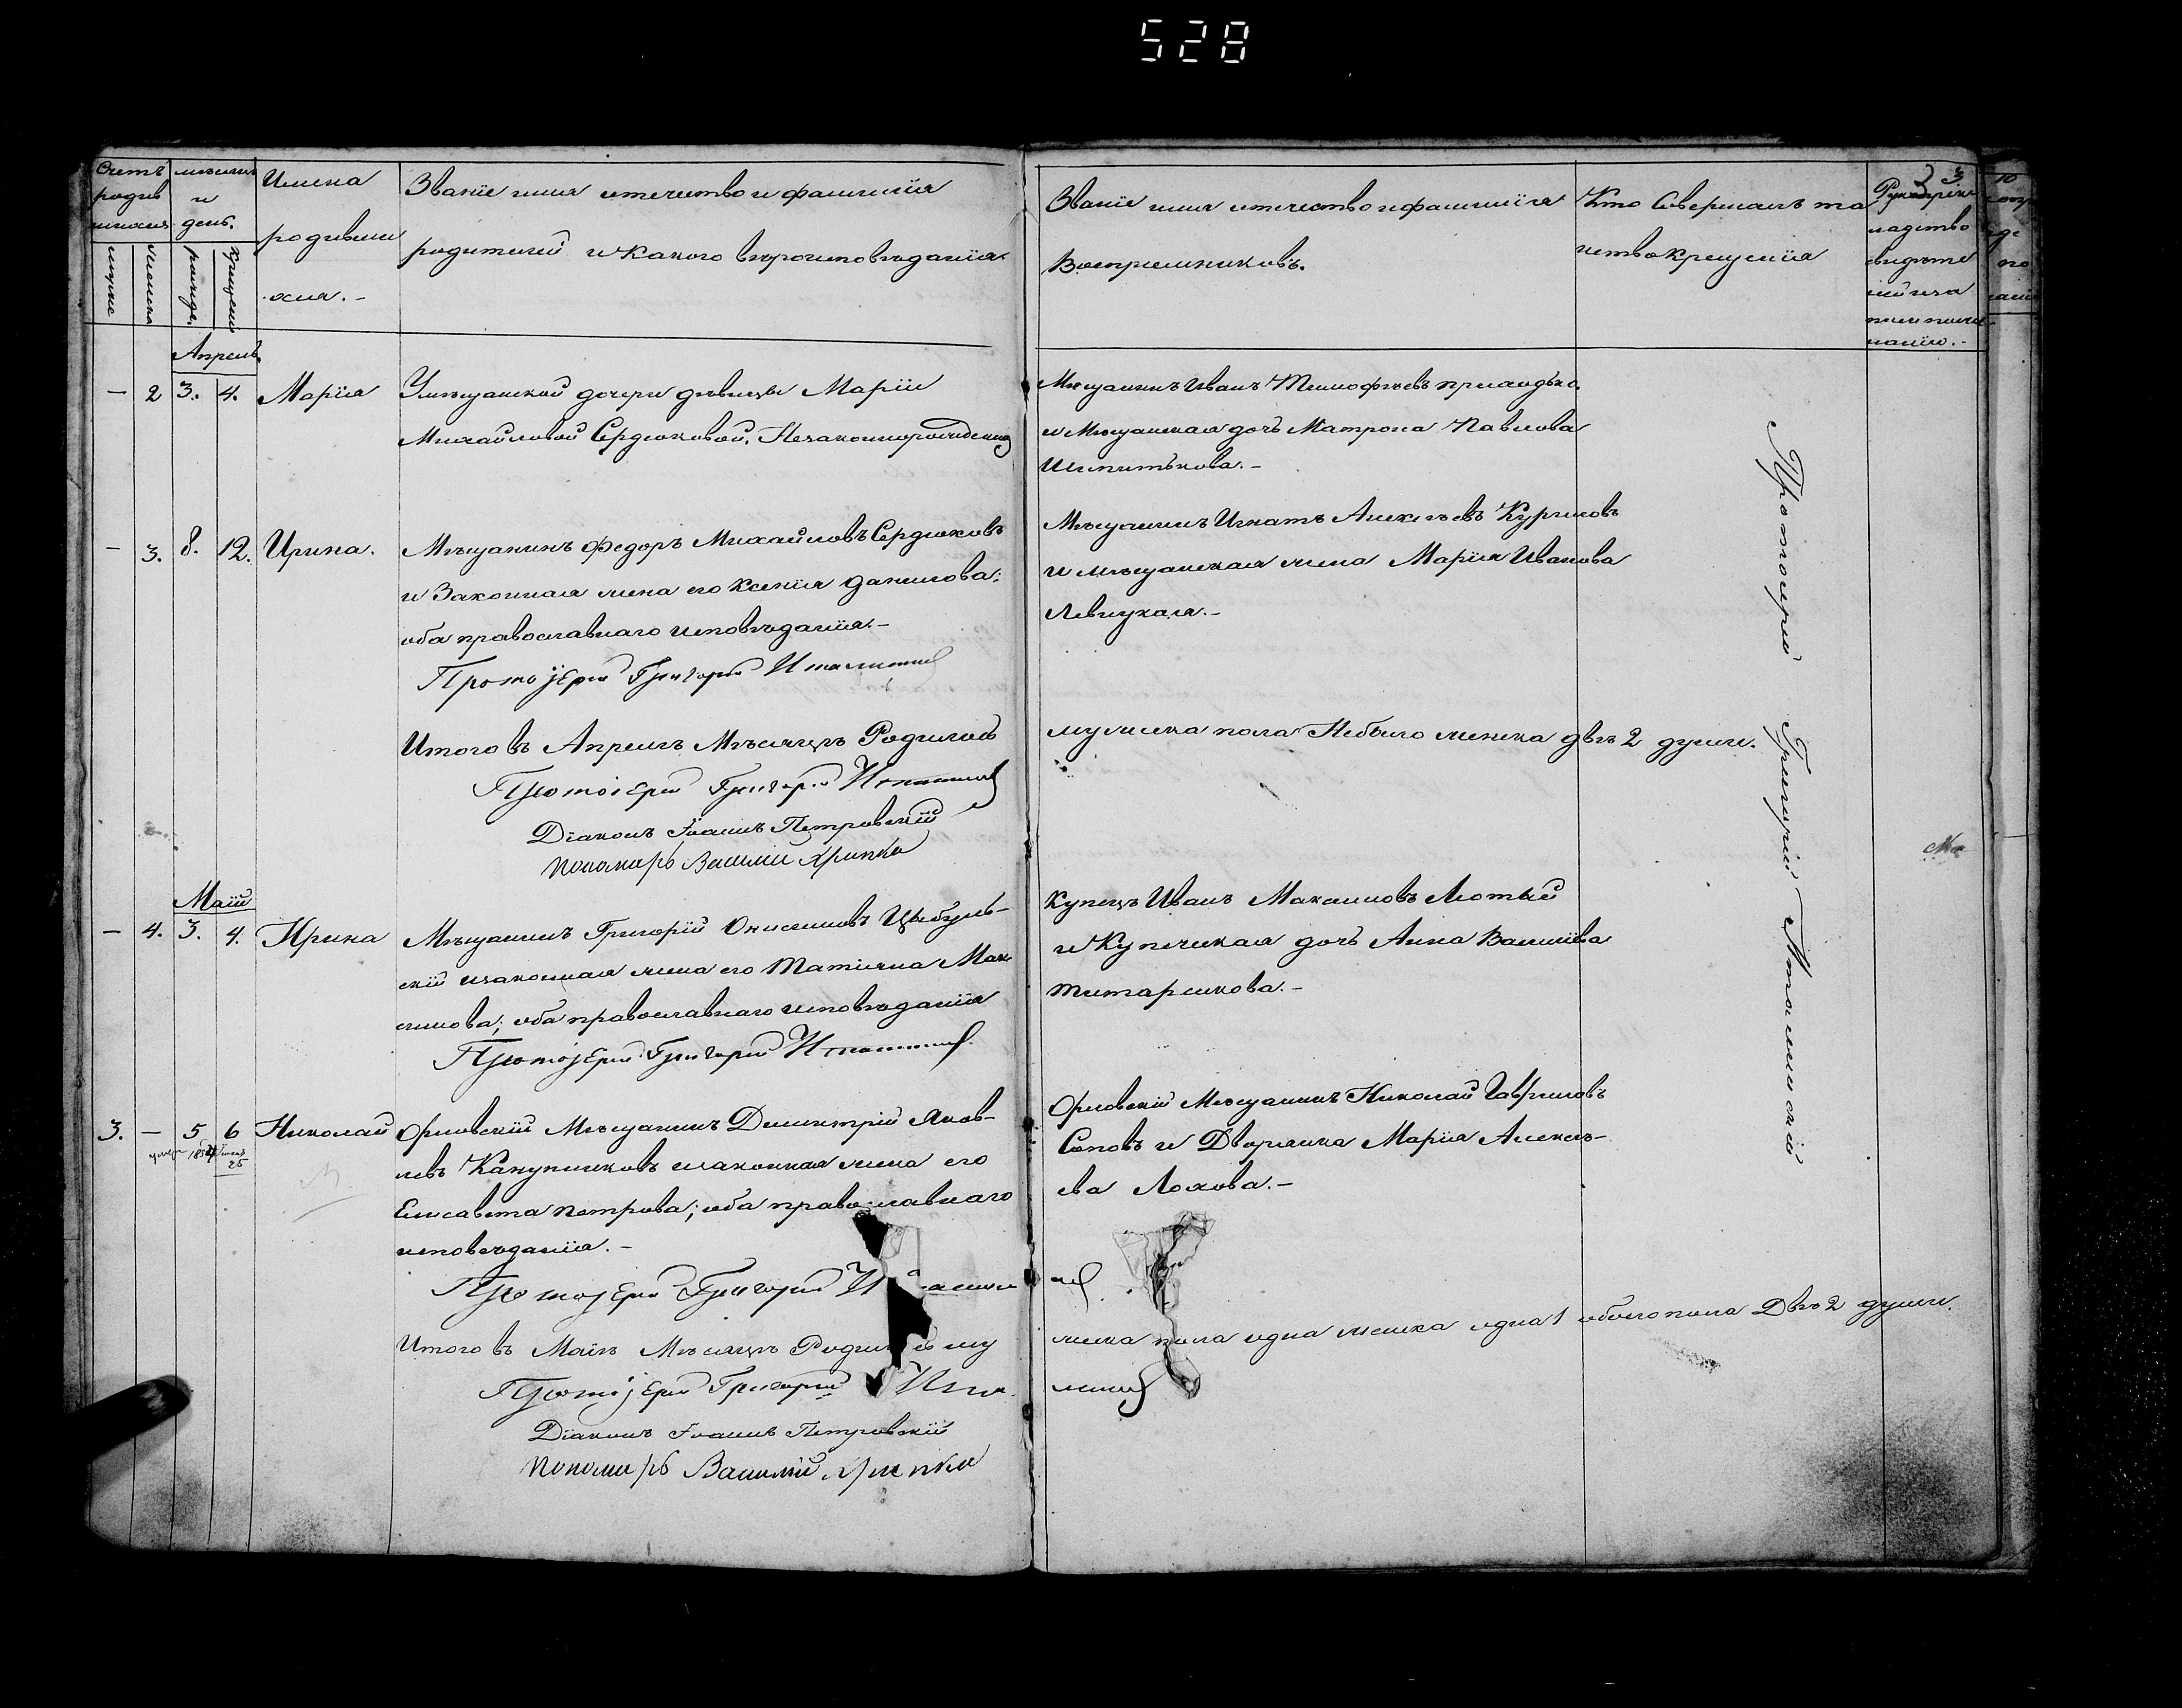 528
Счетъ родив шихся
мѣсяцъ и день.
Имена родивши хся.-
Званіе имя отечество и фамилія
родителей и какого вѣроисповѣданія.
мужес
женска
рожде.
крещені
Званіе имя отечество и фамилія
Воспріемниковъ.
Кто Совершалъ та
инство крещенія
3
10
ладство
Апрель.
— 2 3. 4. Марія
Умѣщанской дочери дѣвицы Маріи
Михайловой Сердюковой. Незаконнорожденна
Мѣщанинъ Иванъ Тимофѣевъ
и Мѣщанская дочь Матрона Павлова
— 3. 8. 12. Ирина.
Мѣщанинъ Федоръ Михайловъ Сердюковъ
и Законная жена его Ксенія Данилова;
оба православнаго исповѣданія.-
Протоіерей Григорій
Мѣщанинъ Игнатъ Алексѣевъ Куриловъ
и мѣщанская жена Марія Иванова
Левицкая.-
Итого въ Апрелѣ Мѣсяцѣ Родилось
мужеска пола Небыло женска двѣ 2 души.
Протоіерей Григорій
Діаконъ Іоаннъ Петровскій
пономарь Василій Хрипко
Май
— 4. 3. 4. Ирина
Мѣщанинъ Григорій Онисимовъ Цыбуль-
скій изаконная жена его Татіяна Мак
симова; оба православнаго исповѣданія
Протоіерей Григорій
Купецъ Иванъ Максимовъ Лютый
и Купеческая дочь Анна Василіева
Титаренкова.-
3. — 5 6 Николай
умеръ
25
Орловскій Мѣщанинъ Димитрій Яков-
левъ Канунниковъ изаконная жена его
Елисавета Петрова; оба православнаго
исповѣданія.-
Протоіерей Григорій
Орловскій Мѣщанинъ Николай Гавриловъ
Соповъ и Дворянка Марія Алексѣ-
ева Лохова.-
Итого въ Маѣ Мѣсяцѣ Родилось му
жеска пола одна женска одна 1 обоего пола Двѣ 2 души.
Протоіерей Григорій
Діаконъ Іоаннъ Петровскій
пономарь Василій Хрипко
Протоіерей Григорій